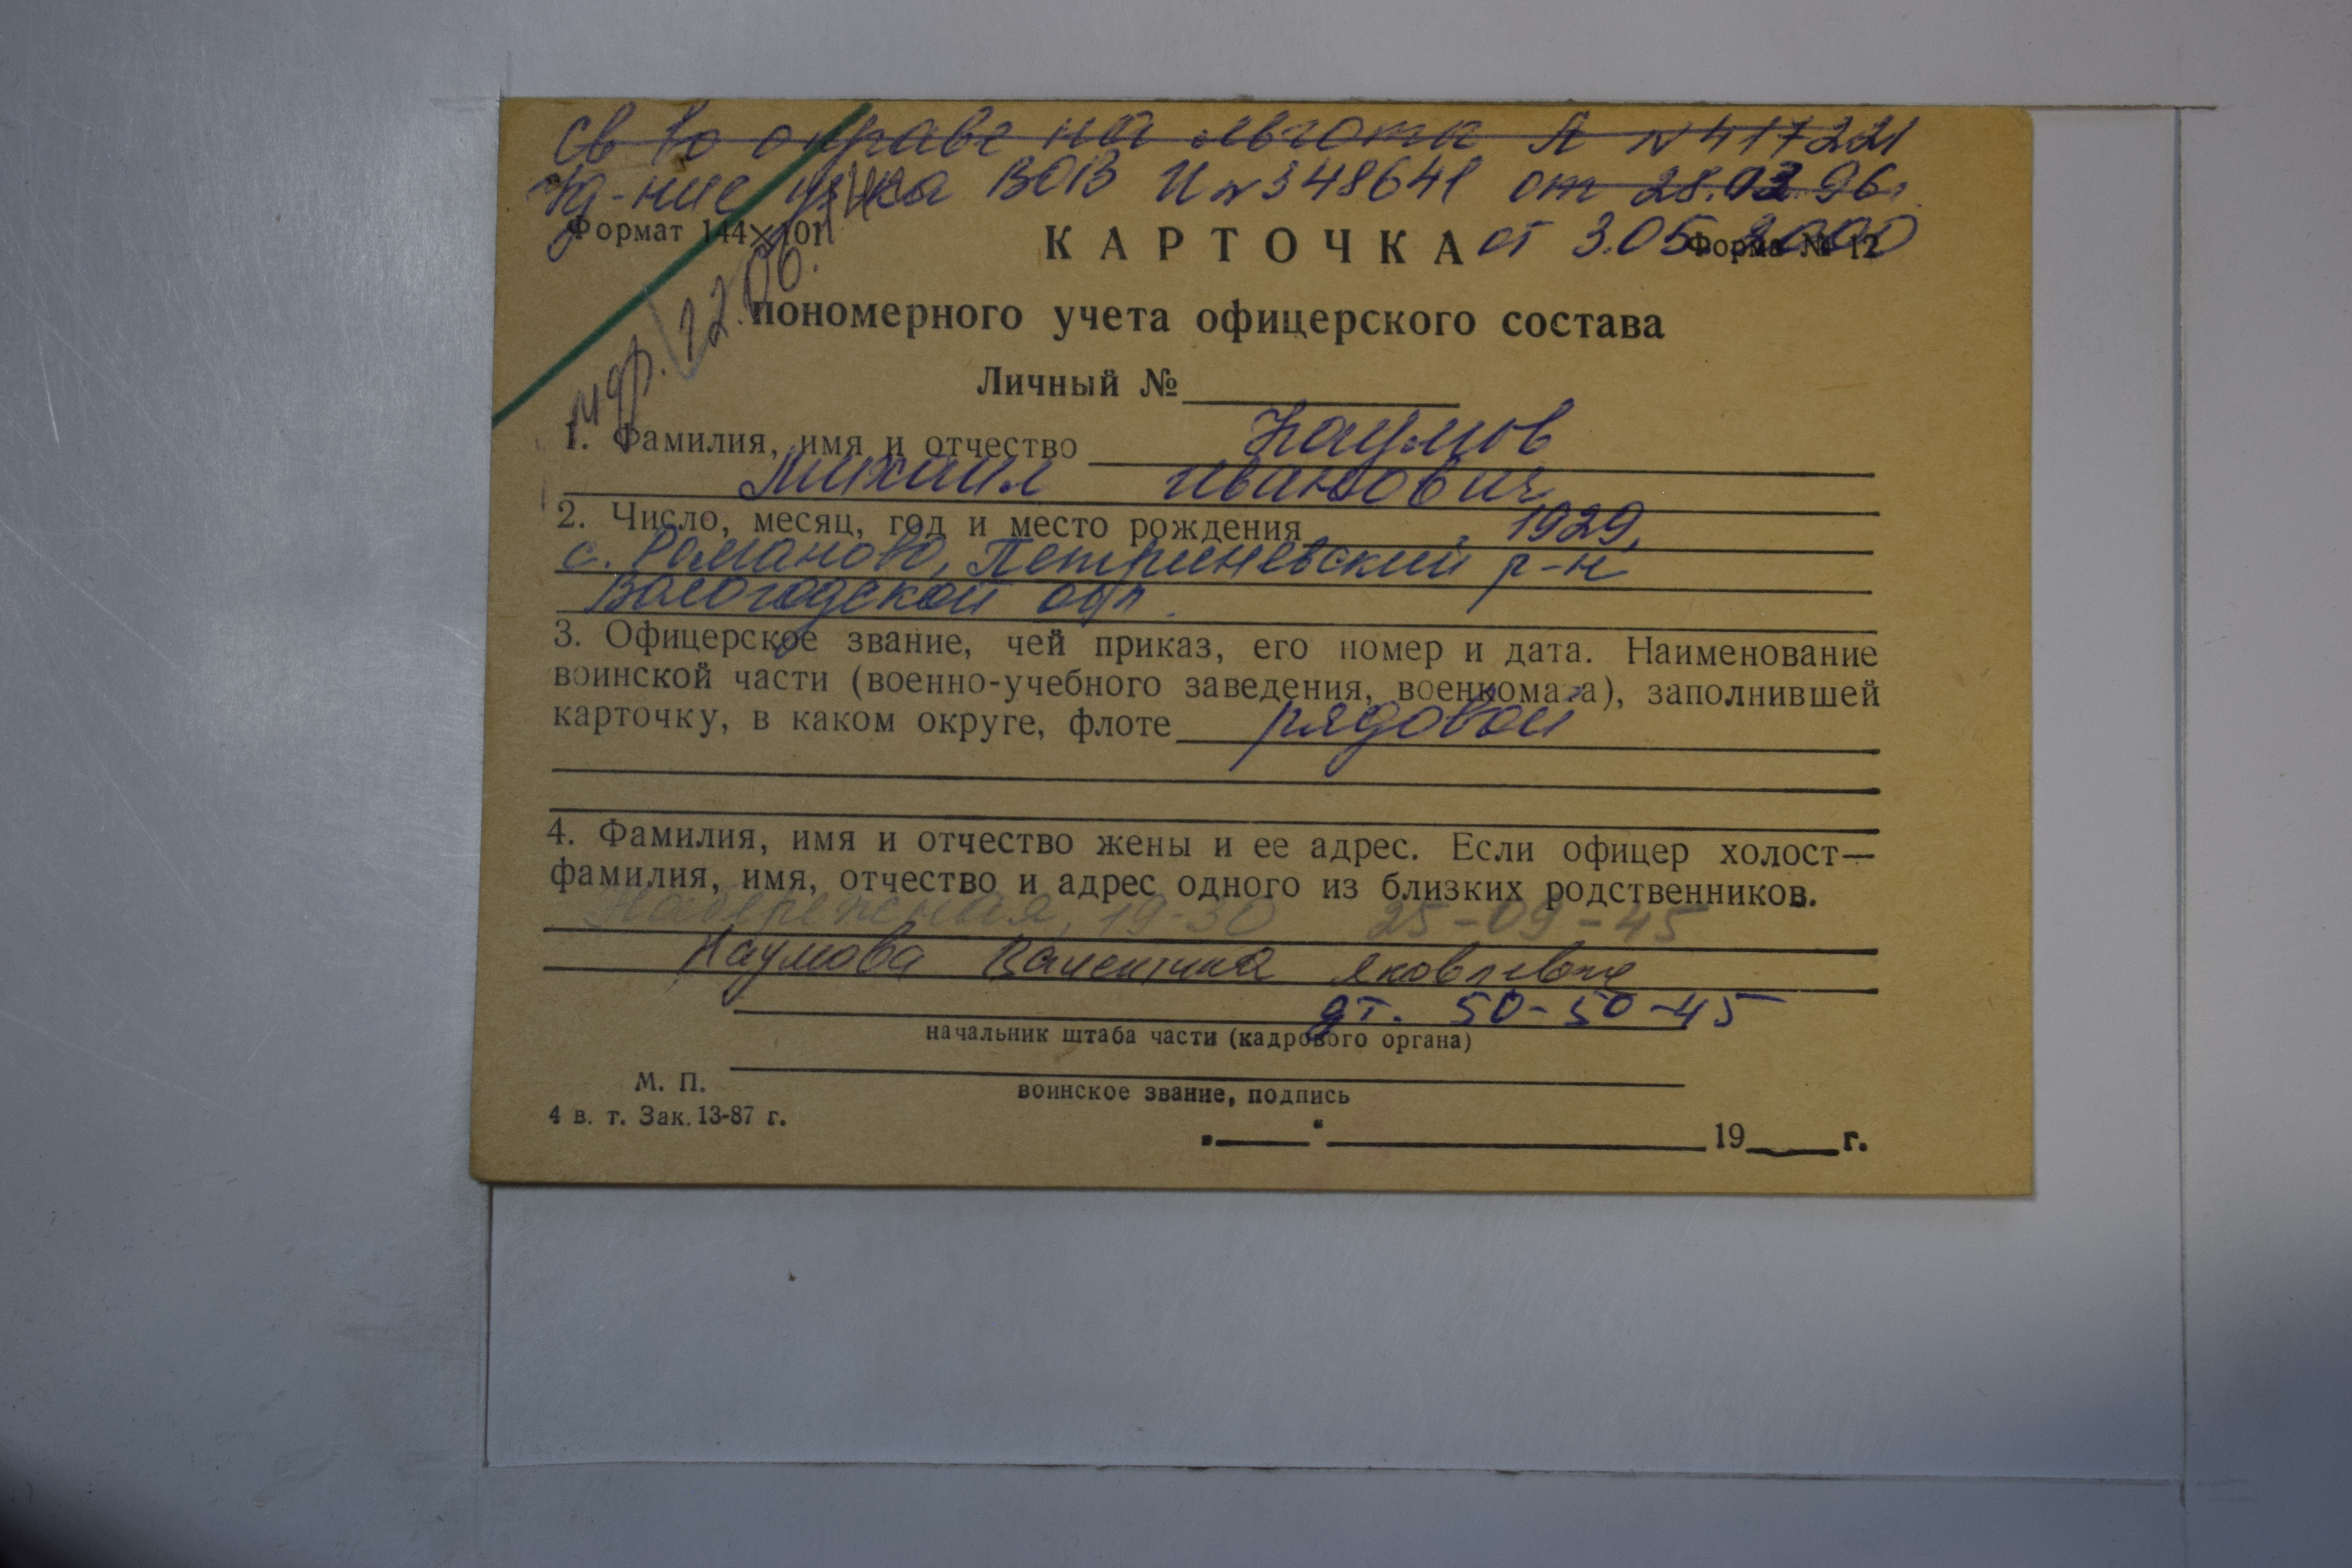 Св во о праве на льготы А №417221
Уд-ние уч-ка ВОВ И №348641 от 28.02.96г.
Формат 144×101
КАРТОЧКА от 3.05.2000
Форма № 12
умер. 22.06.
пономерного учета офицерского состава
Личный №
1. Фамилия, имя и отчество Наумов
Михаил Иванович
2. Число, месяц, год и место рождения 1929,
с. Романово, Петриневский р-н
Вологодской обл.
3. Офицерское звание, чей приказ, его номер и дата. Наименование
воинской части (военно-учебного заведения, военкомата), заполнившей
карточку, в каком округе, флоте рядовой
4. Фамилия, имя и отчество жены и ее адрес. Если офицер холост—
фамилия, имя, отчество и адрес одного из близких родственников.
Набережная, 19-30 25-09-45
Наумова Валентина Яковлевна
дт. 50-50-45
начальник штаба части (кадрового органа)
М. П.
воинское звание, подпись
4 в. т. Зак. 13-87 г.
„ “ 19 г.